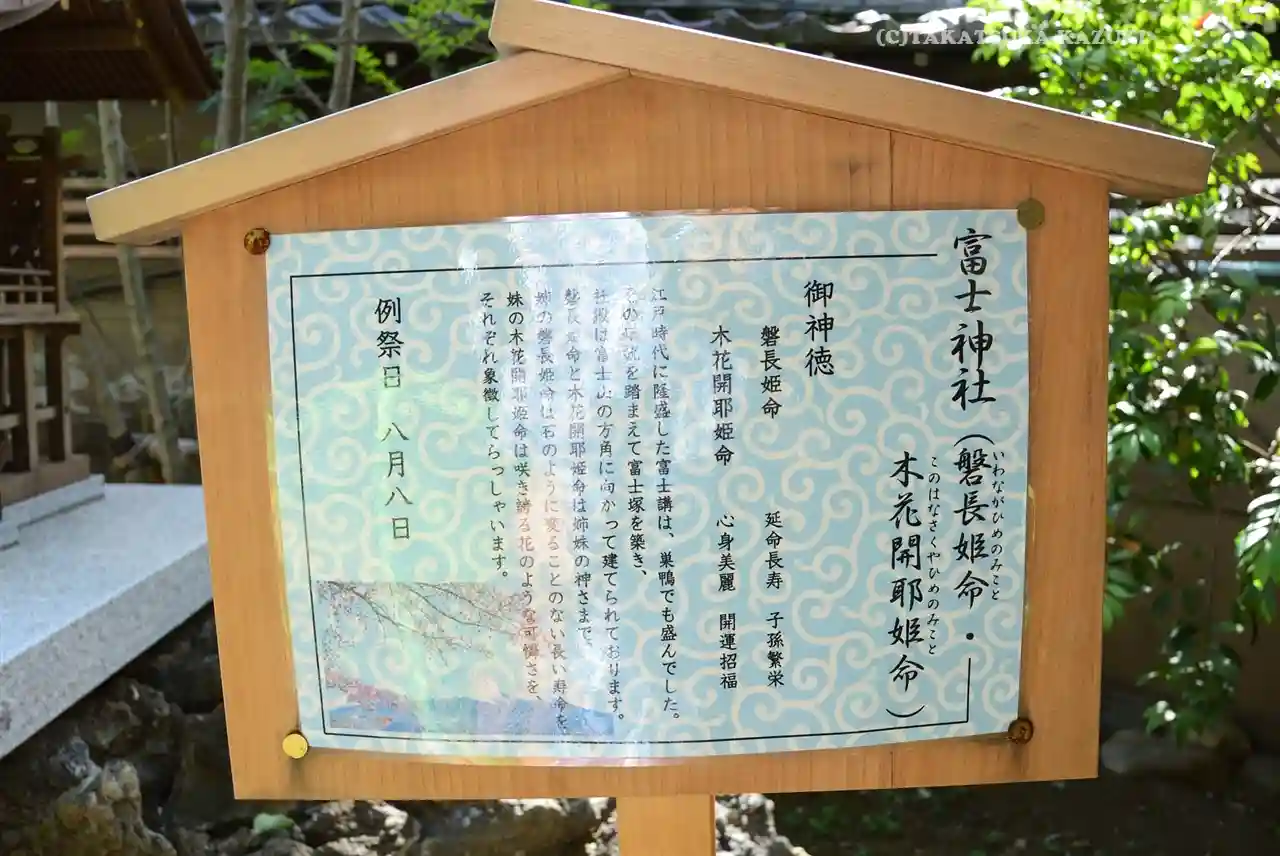 富士神社(磐長姫命・
いわながひめのみこと
木花開耶姫命)
このはなさくやひめのみこと
御神徳
磐長姫命 延命長寿 子孫繁栄
木花開耶姫命 心身美麗 開運招福
江戸時代に隆盛した富士講は、巣鴨でも盛んでした。
を踏まえて富士塚を築き、
社殿は富士山の方角に向かって建てられております。
磐長姫命と木花開耶姫命は姉妹の神さまで、
姉の磐長姫命は石のように変ることのない長い寿命を、
妹の木花開耶姫命は咲き誇る花のような可憐さを、
それぞれ象徴してらっしゃいます。
例祭日 八月八日
(C)TAKATSUKA KAZUKI